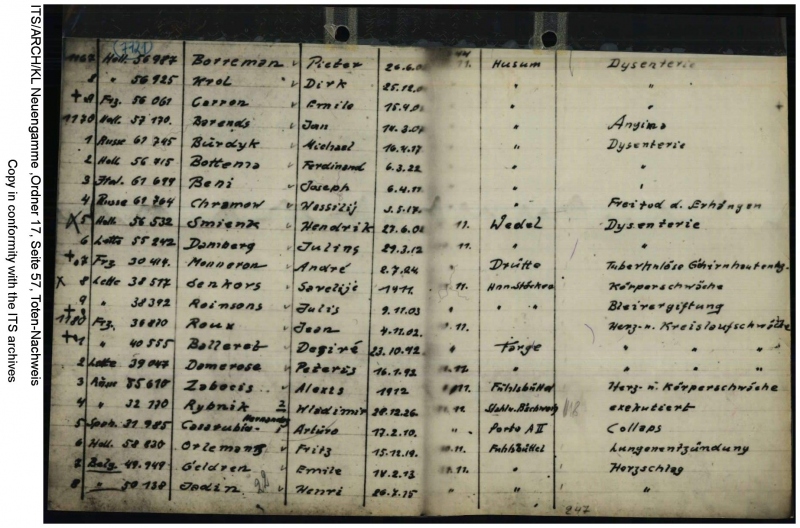 ITS/ARCH/KL Neuengamme ,Ordner 17, Seite 57, Toten-Nachweis
Copy in conformity with the ITS archives
1167 Holl. 56 987 Borreman Pieter 26.6.0 11. Husum Dysenterie
8 " 56 925 Krol Dirk 25.12.0 " "
+ 9 Frz. 56 061 Carron Emile 15.4.0 " "
1170 Holl. 57 170. Barends Jan 14.3.0 " Angina
1 Russe 61 745 Bürdyk Michael 16.4.17 " Dysenterie
2 Holl 56 715 Bottema Ferdinand 6.3.22 " "
3 Ital. 61 699 Beni Joseph 6.4.11 "
4 Russe 61 764 Chramow Wassilij 3.5.17. " Freitod d. Erhängen
X 5 Holl. 56 532 Smienk Hendrik 27.6.0 11. Wedel Dysenterie
6 Lette 55 242 Damberg Julins 29.3.12 11. " "
+ 7 Frz. 30 414. Monneron André 2.7.24 " Drütte
X 8 Lette 38 517 Senkors Savelije 1911. 11. Hann.-Stöcken Körperschwäche
+ 9 " 38 392 Roinsons Julis 9.11.03 " " " Bleivergiftung
1180 Frz. 30 870 Roux Jean 4.11.02. 11. Herz- u. Kreislaufschwäche
+ 1 " 40 555 Balleret Degiré 23.10.42. " Farge " " "
2 Lette 39 047 Domerose Peteris 16.1.92 " " " "
3 85 610 Zabecis Alexis 1912 11. Fühlsbüttel Herz- u. Körperschwäche
4 " 32 170 Rybnik 2 Wladimir 28.12.26. 11. exekutiert
5 Span. 31 985 Casarubia- Hernandez Arturo 17.2.10. " Porta A II Collaps
6 Holl. 58 830 Orlemans Fritz 15.12.19. 11. Fuhlsbüttel Lungenentzündung
7 Belg. 49 949 Geldren Emile 14.2.13 11. " Herzschlag
8 " 50 138 Jadin Henri 26.7.15 " " "
247